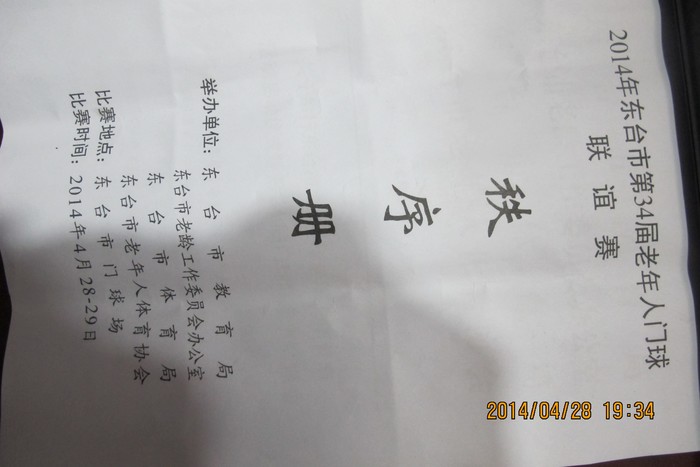 2014年东台市第34届老年人门球
联谊赛
秩
序
册
举办单位：东台市教育局
东台市老龄工作委员会办公室
东台市体育局
东台市老年人体育协会
比赛地点：东台市门球场
比赛时间：2014年4月28-29日
2014/04/28 19:34